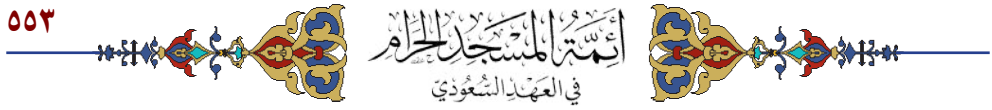 ٥٥٣
أَئِمَّةُ المَسْجِدِ الحَرَامِ
فِي العَهْدِ السُّعُودِيِّ